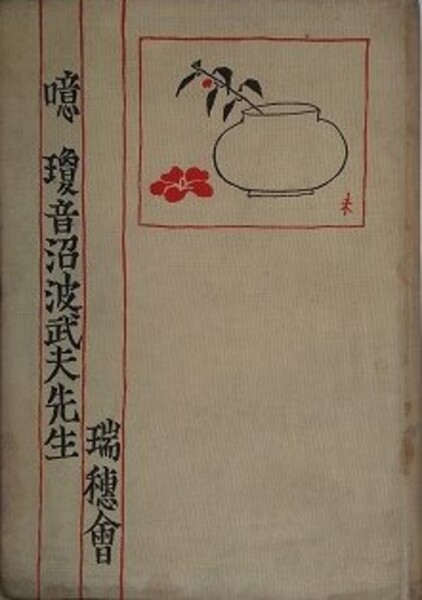 噫 瓊音沼波武夫先生
瑞穂會